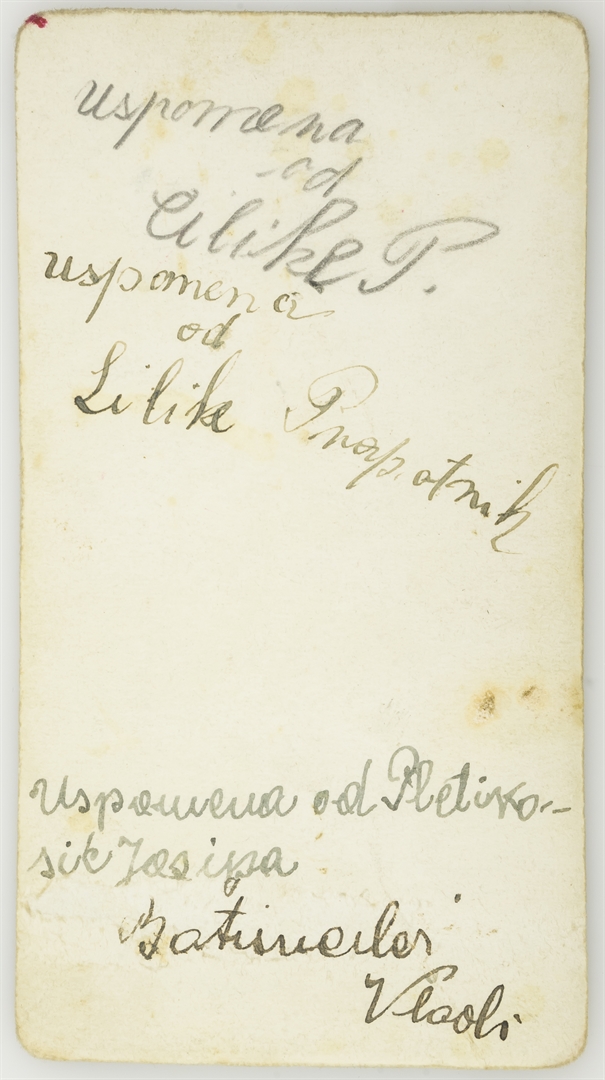 uspomena
od
Lilike P.
uspomena
od
Lilik Prapotnik
uspomena od Pletiko-
sik Josipa
Vladi